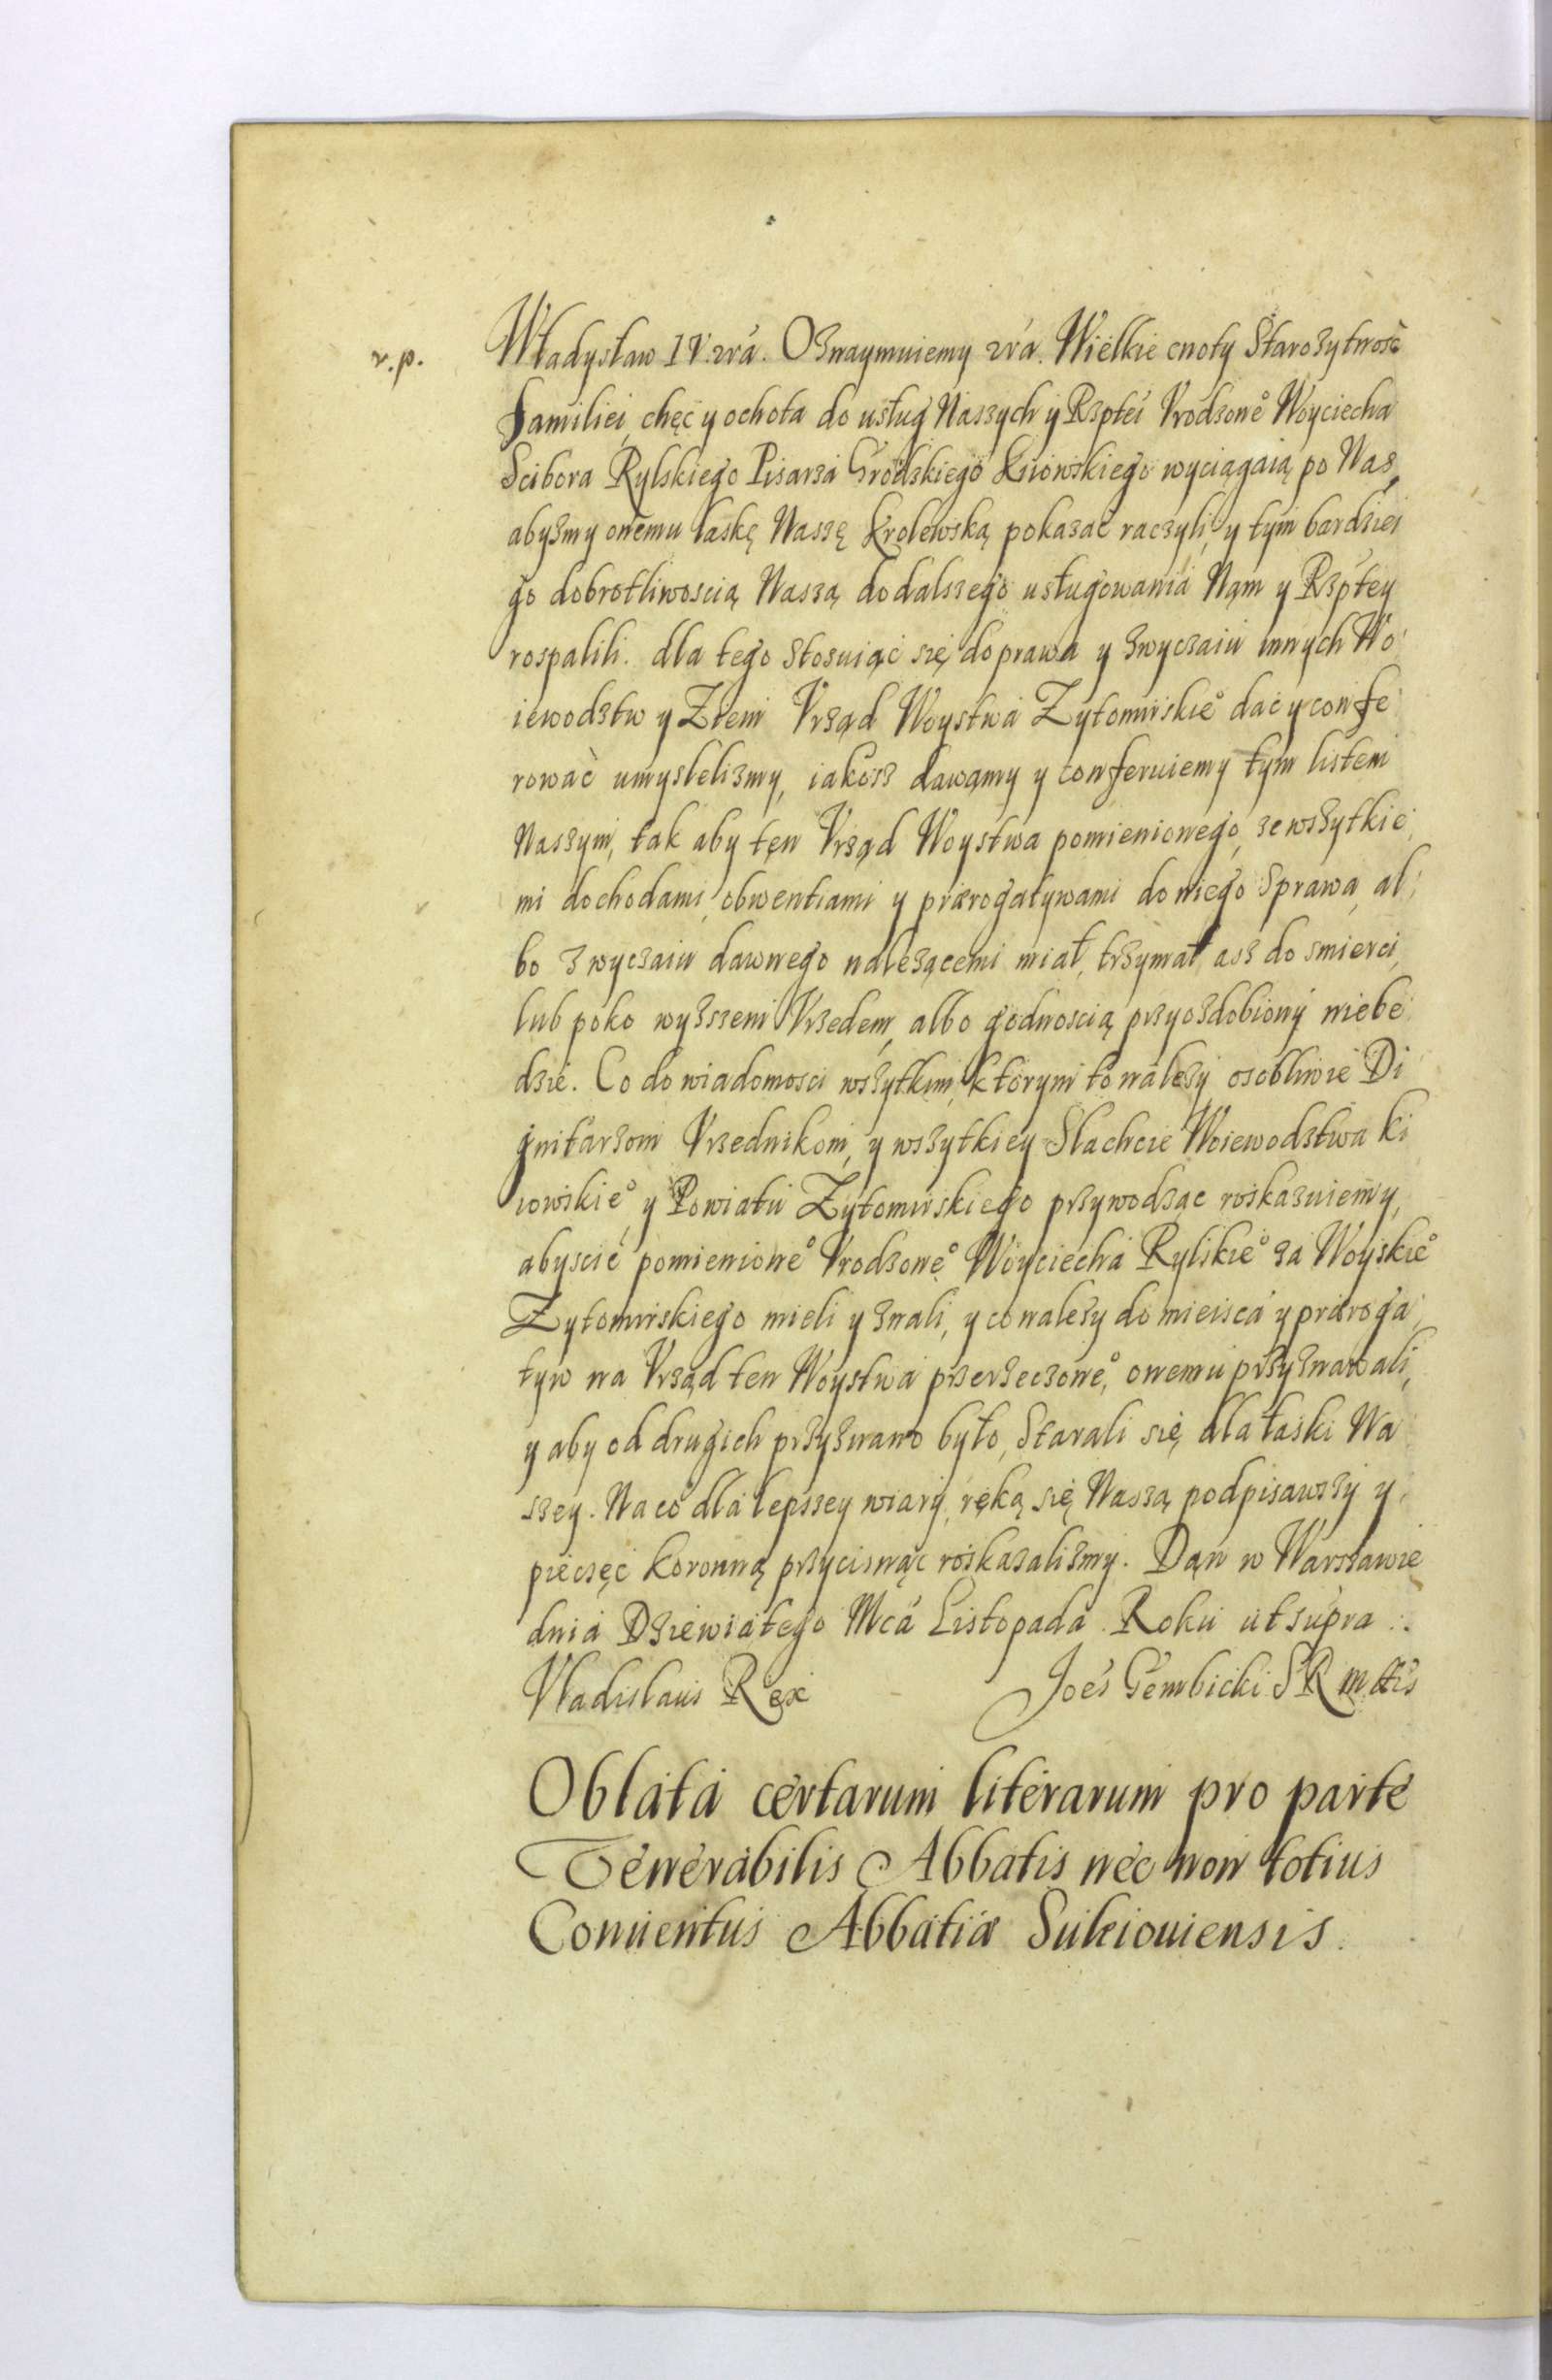 r.p.
Władysław IV. etc̃á. Oznaymuiemy etc̃á. Wielkie cnoty Starożytność
Familiei, chęć y ochota do usług Naszych y Rzptéi Vrodzone° Woyciecha
Scibora Rylskiego Pisarza Grodzkiego Kiiowskiego wyciągaią po Nas,
abyzmy onemu łaskę Naszę Krolewską pokazać raczyli, y tym bardziei
go dobrotliwoscią Naszą do dalszego usługowania Nąm y Rzptey
rospalili. dla tego stosuiąc się do prawa y zwyczaiu innych Wo
iewodztw y Ziem Vrząd Woystwa Zytomirskie° dać y confe
rować umyslelizmy, iakosz dawamy y conferuiemy tym listem
Naszym, tak aby tęn Vrząd Woystwa pomienionego, ze wszytkie
mi dochodami, obwentiami y prærogatywami do niego sprawa, al
bo zwyczaiu dawnego należącemi miał, trzymał asz do smierci,
lub poko wyższem Vrzedem, albo godnoscią przyozdobiony niebe
dzie. Co do wiadomosci wszytkim, ktorym to należy osobliwie Di
gnitarzom Vrzednikom, y wszytkiey Slachcie Woiewodztwa ki
iowskie°, y Powiatu Zytomirskiego przywodząc roskazuiemy,
abyscie pomienione° Vrodzone° Woyciecha Rylskie° za Woyskie°
Zytomirskiego mieli y znali, y co należy do mieisca y præroga
tyw na Vrząd ten Woystwa przerzeczone°, onemu przyznawali,
y aby od drugich przyznano było, starali się, dla łaski Na
szey. Na co dla lepszey wiary, ręką się Naszą podpisawszy y
pieczęć koronną przycisnąc roskazalizmy. Dąn w Warszawie
dnia Dziewiątego Mcá Listopada Roku ut supra :.
Vladislaus Rex Joes Gembicki S R mttis
Oblata certarum literarum pro parte
Venerabilis Abbatis nec non totius
Conuentus Abbatiæ Suleiouiensis.